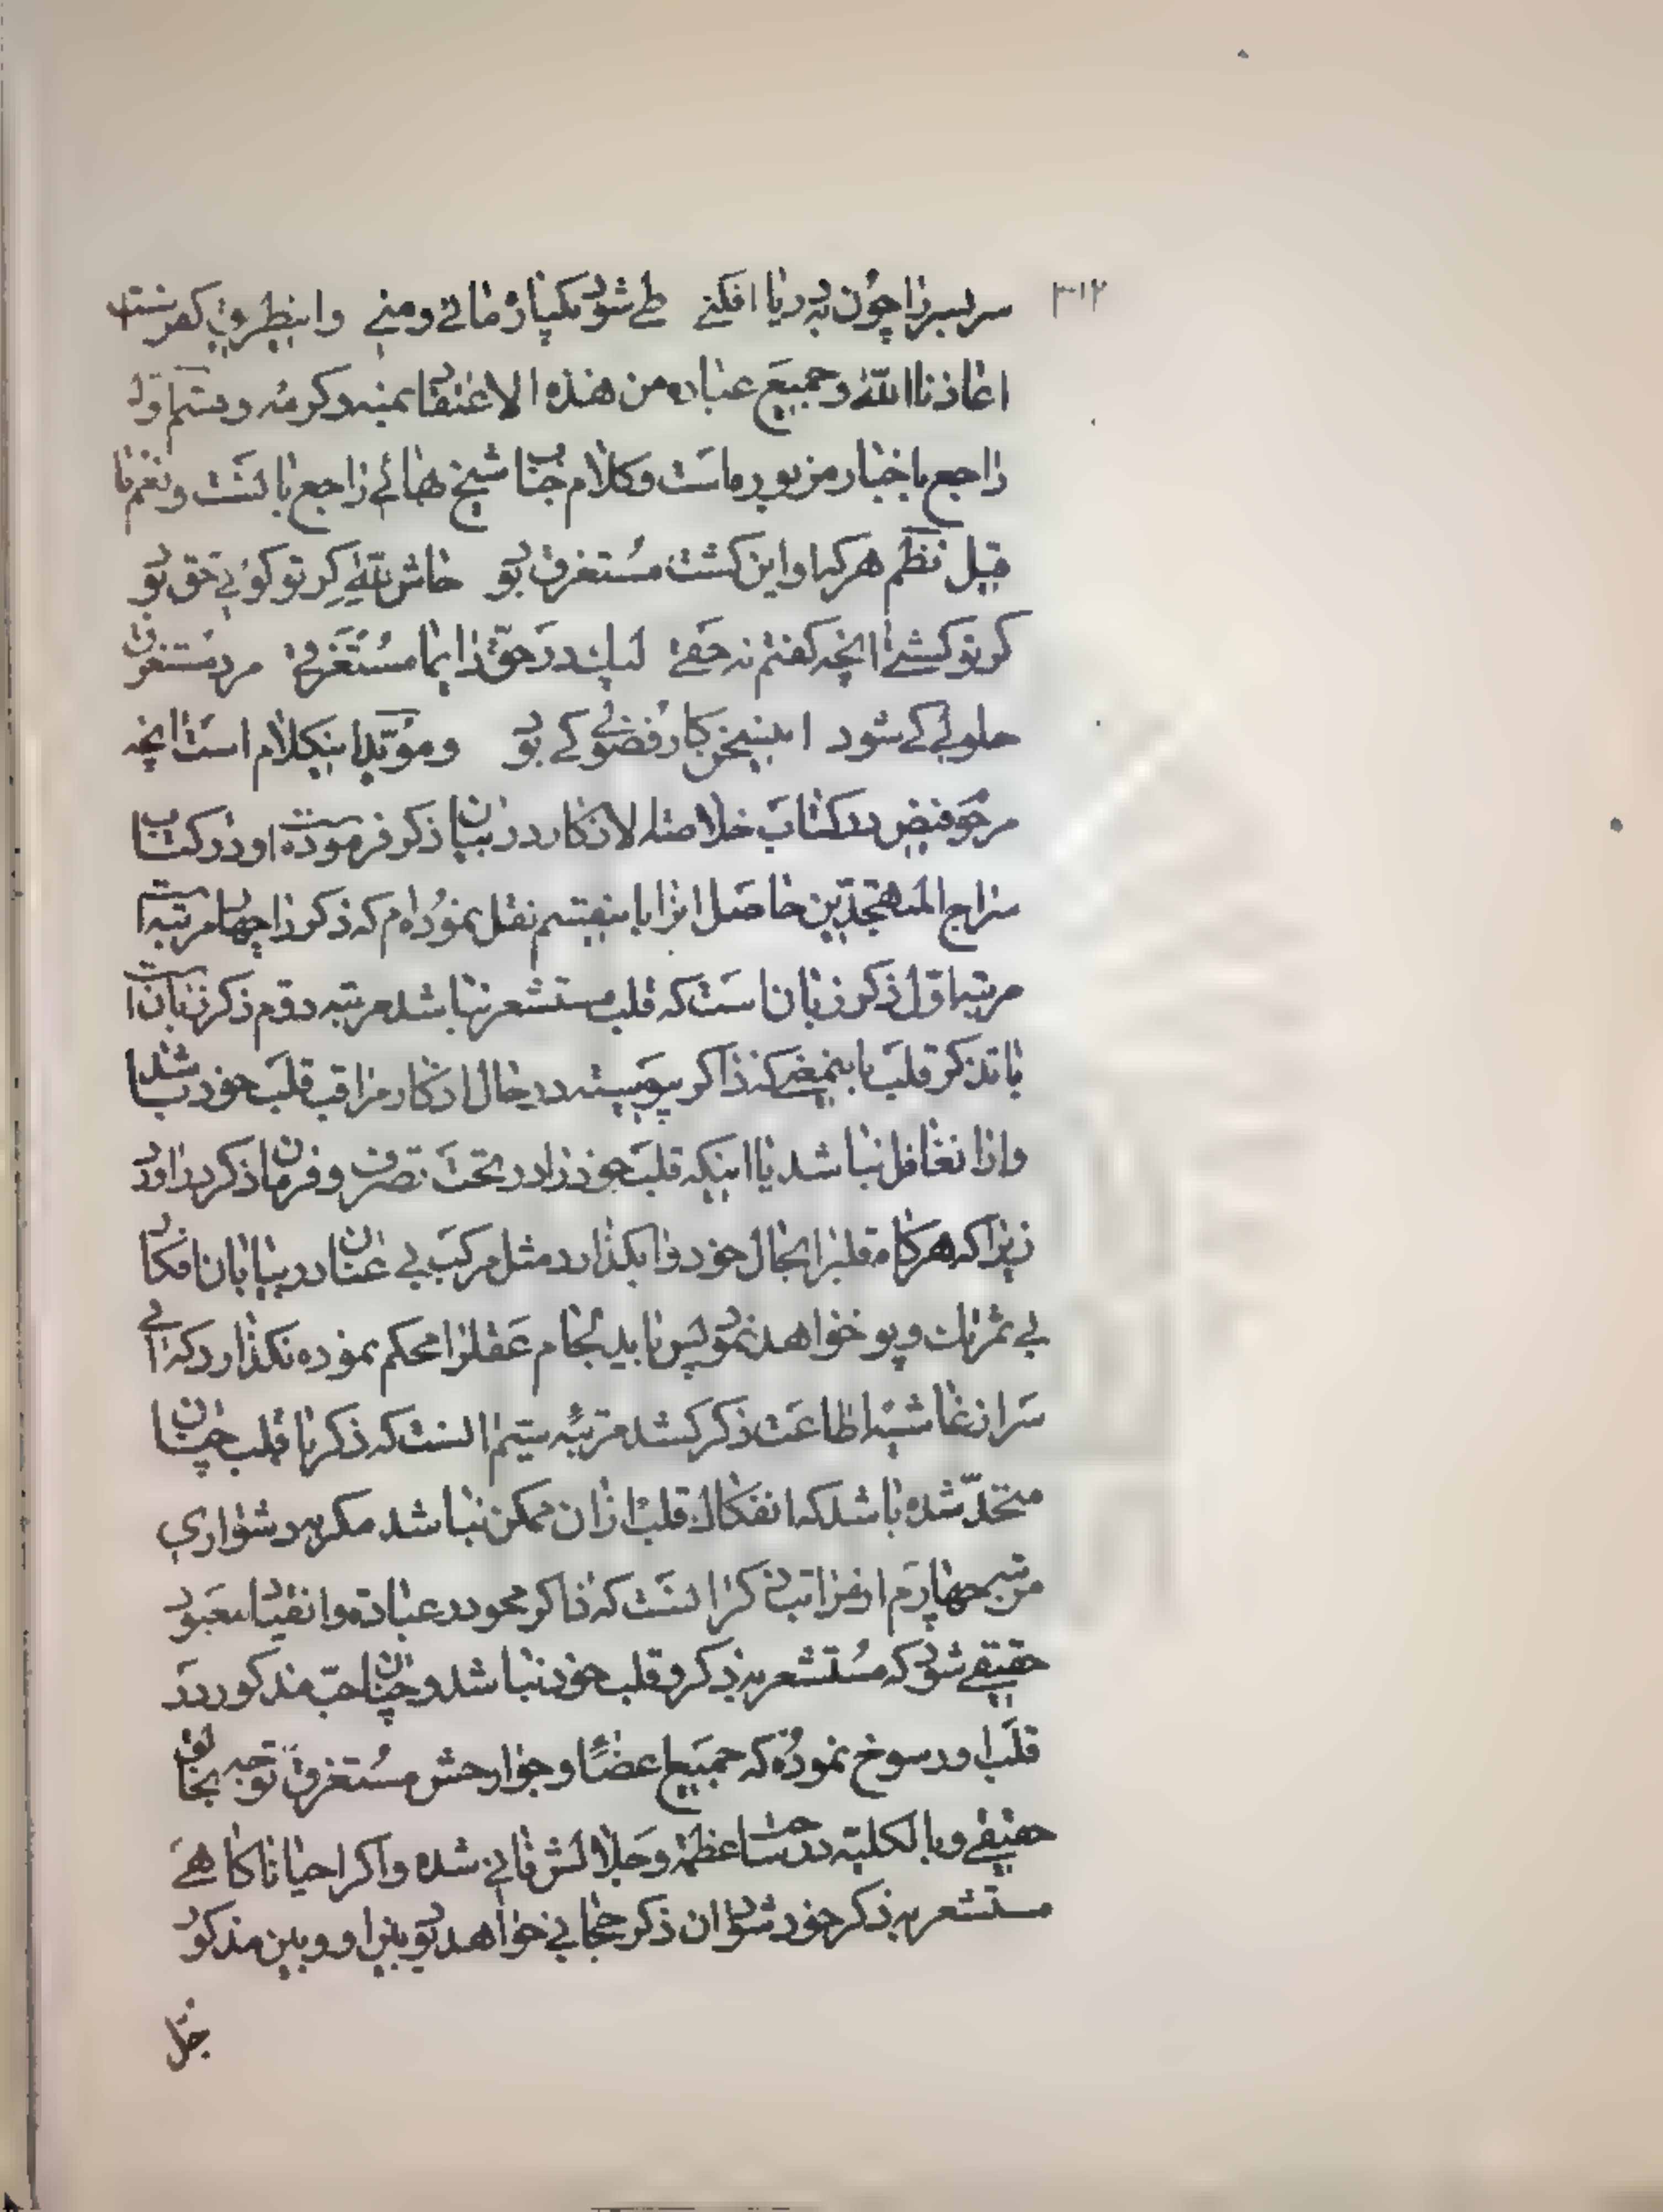 ۳۱۲
سربسر را چون به دریا افکنی طی شود یکباره مائی و منی و اینطریق کفر است
اعاذنا الله و جمیع عباده من هذه الاعتقاد بمنه و کرمه و قسم اول
راجع باخبار مزبوره است و کلام جناب شیخ بهائی راجع بانست و نعم ما
قیل نظم هر که او این کشت مستغرق بود حاش لله کر تو کوئی حق بود
کر تو کشتی انچه کفتم نه حقی لیک در حق دایما مستغرقی مرد مستغرق
حلولی کی شود این سخن کار فضولی کی بود و مؤید اینکلام است انچه
مرحوم فیض در کتاب خلاصة الاذکار در بیان ذکر فرموده است و در کتاب
سراج المتهجدین حاصل انرا باینقسم نقل نموده ام که ذکر را چهار مرتبه است
مرتبه اول ذکر زبان است که قلب مستشعر نباشد مرتبه دوم ذکر زبان است
با تذکر قلب باینمعنی که ذاکر پیوسته در حال اذکار مراقب قلب خود باشد
و ازا نغافل نباشد یا اینکه قلب خود را در تحت تصرف و فرمان ذکر در اورد
زیرا که هرکاه قلبرا بحال خود وا بکذارد مثل مرکب بی عنان در بیابان افکار
بی ثمر تک و پو خواهد نمود پس باید لجام عقلرا محکم نموده نکذارد که انی
سر از غاشیه اطاعت ذکر کشد مرتبه سیم انست که ذکر با قلب چنان
متحد شده باشد که انفکاک قلب ازان ممکن نباشد مکر بدشواری
مرتبه چهارم از مراتب ذکر انست که ذاکر محو در عبادة و انقیاد معبود
حقیقی شود که مستشعر بذکر و قلب خود نباشد و چنان حب مذکور در
قلب او رسوخ نموده که جمیع اعضا و جوارحش مستغرق توجه بخالق
حقیقی و بالکلیه در ساحت عظمة و جلالش فانی شده و اکر احیانا کاهی
مستشعر بذکر خود شود ان ذکر حجابی خواهد بود بین او و بین مذکور